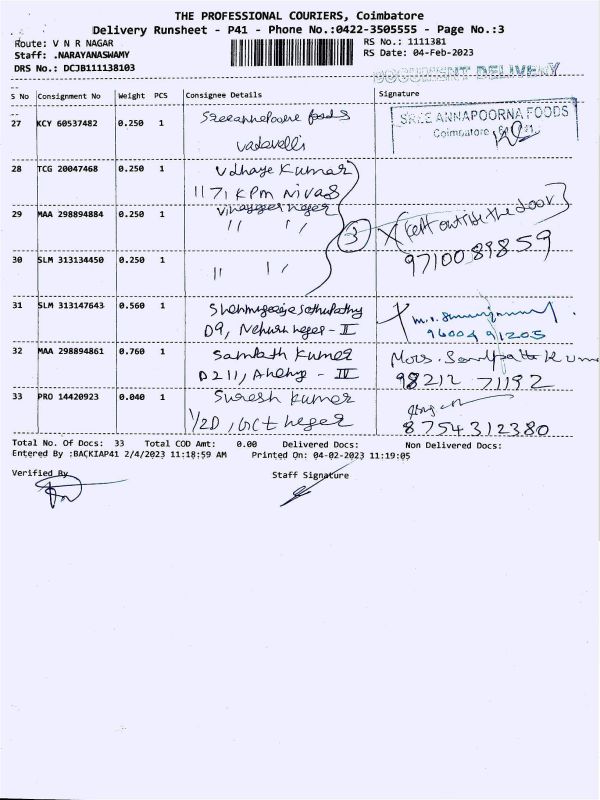 THE PROFESSIONAL COURIERS, Coimbatore
Delivery Runsheet - P41 - Phone No.:0422-3505555 - Page No.:3
Route: V N R NAGAR
RS No.: 1111381
Staff: .NARAYANASWAMY
RS Date: 04-Feb-2023
DRS No.: DCJB111138103
DOCUMENT DELIVERY
S No Consignment No Weight PCS Consignee Details Signature
27 KCY 60537482 0.250 1 foods
SREE ANNAPOORNA FOODS
Coimbatore
Vadavelli
28 TCG 20047468 0.250 1 Udhaya Kumar
1171 KPM Nivas
29 MAA 298894884 0.250 1
" "
3 X (left outside the door)
9710089859
30 SLM 313134450 0.250 1
" "
31 SLM 313147643 0.560 1
D9, Nehru - II
9600491205
32 MAA 298894861 0.760 1 Kumar
D211, - IV
Mrs.
98212 71192
33 PRO 14420923 0.040 1 Suresh Kumar
1/2D,
8754312380
Total No. Of Docs: 33 Total COD Amt: 0.00 Delivered Docs: Non Delivered Docs:
Entered By :BACKIAP41 2/4/2023 11:18:59 AM Printed On: 04-02-2023 11:19:05
Verified By
Staff Signature